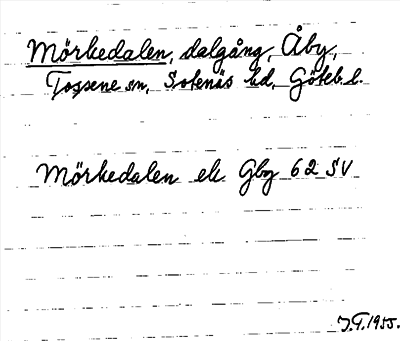 Mörkedalen, dalgång, Åby,
Tossene sn, Sotenäs hd, Göteb. l.
Mörkedalen ek. Gbg 62 SV
J.T. 1955.